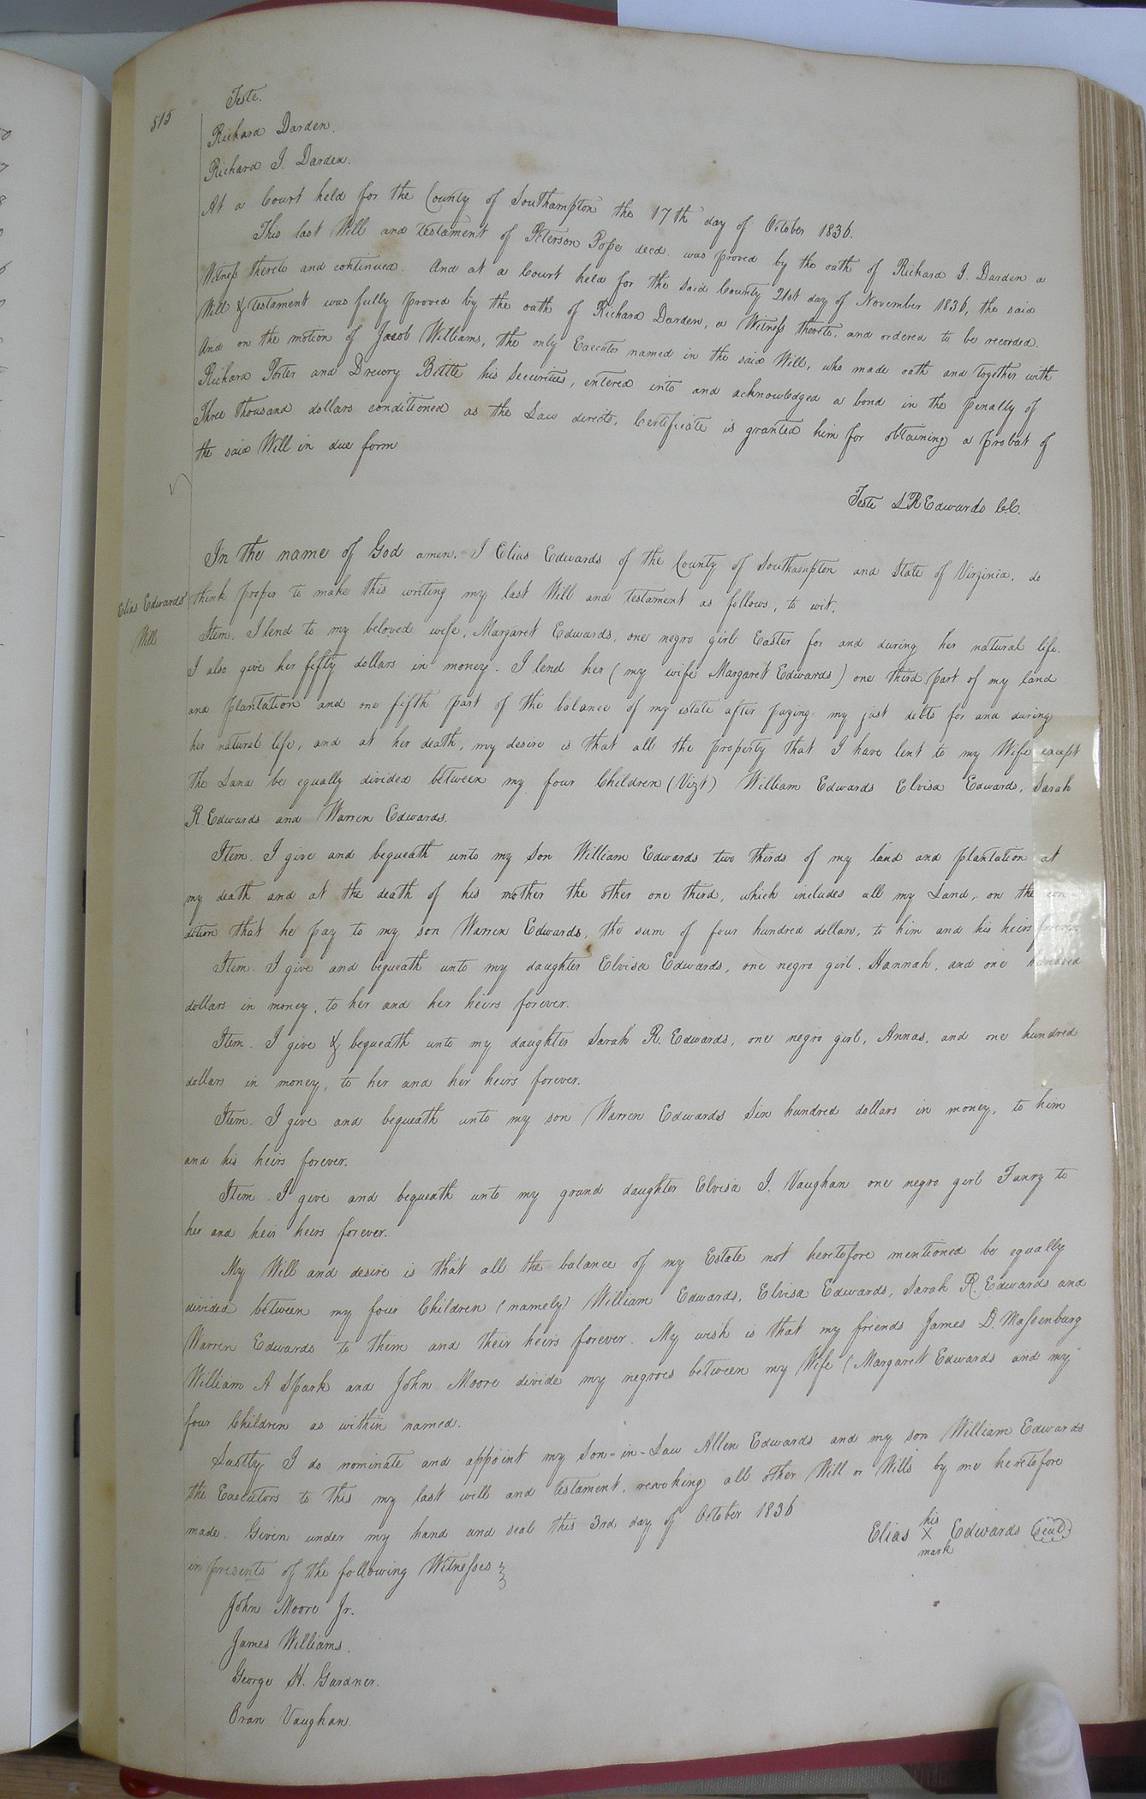 515
Teste.
Richard Darden.
Richard J. Darden.
At a Court held for the County of Southampton the 17th day of October 1836.
This last Will and testament of Peterson Pope decd. was proved by the oath of Richard J. Darden a
Witness thereto and continued. And at a Court held for the said County 21st day of November 1836, the said
Will & testament was fully proved by the oath of Richard Darden, a Witness thereto, and ordered to be recorded.
And on the motion of Jacob Williams, the only Executor named in the said Will, who made oath and together with
Richard Porter and Drewry Bittle his Securities, entered into and acknowledged a bond in the penalty of
Three thousand dollars conditioned as the Law directs, Certificate is granted him for obtaining a probat of
the said Will in due form
Teste L R Edwards C.C.
Elias Edwards'
Will
In the name of God amen. I Elias Edwards of the County of Southampton and State of Virginia, do
think proper to make this writing my last Will and testament as follows, to wit.
Item. I lend to my beloved wife, Margaret Edwards, one negro girl Easter for and during her natural life.
I also give her fifty dollars in money. I lend her (my wife Margaret Edwards) one third part of my land
and plantation and one fifth part of the balance of my estate after paying my just debts for and during
her natural life, and at her death, my desire is that all the property that I have lent to my Wife except
the Land be equally divided between my four Children (Vizt) William Edwards Elvisa Edwards, Sarah
R. Edwards and Warren Edwards.
Item. I give and bequeath unto my Son William Edwards two thirds of my land and plantation at
my death and at the death of his mother the other one third, which includes all my Land, on the con-
dition that he pay to my son Warren Edwards, the sum of four hundred dollars, to him and his heirs forever.
Item. I give and bequeath unto my daughter Elvisa Edwards, one negro girl, Hannah, and one hundred
dollars in money, to her and her heirs forever.
Item. I give & bequeath unto my daughter Sarah R. Edwards, one negro girl, Annas, and one hundred
dollars in money, to her and her heirs forever.
Item. I give and bequeath unto my son Warren Edwards Six hundred dollars in money, to him
and his heirs forever.
Item. I give and bequeath unto my grand daughter Elvisa J. Vaughan one negro girl Fanny to
her and heir heirs forever.
My Will and desire is that all the balance of my Estate not heretofore mentioned be equally
divided between my four Children (namely) William Edwards, Elvisa Edwards, Sarah R. Edwards and
Warren Edwards to them and their heirs forever. My wish is that my friends James D. Massenburg
William A Spark and John Moore divide my negroes between my Wife (Margaret Edwards and my
four Children as within named.
Lastly I do nominate and appoint my Son-in-Law Allen Edwards and my son William Edwards
the Executors to this my last will and testament, revoking all other Will or Wills by me heretofore
made. Given under my hand and seal this 3rd day of October 1836
in presents of the following Witnesses
his
Elias X Edwards seal
mark
John Moore Jr.
James Williams.
George H. Gardner.
Oran Vaughan.